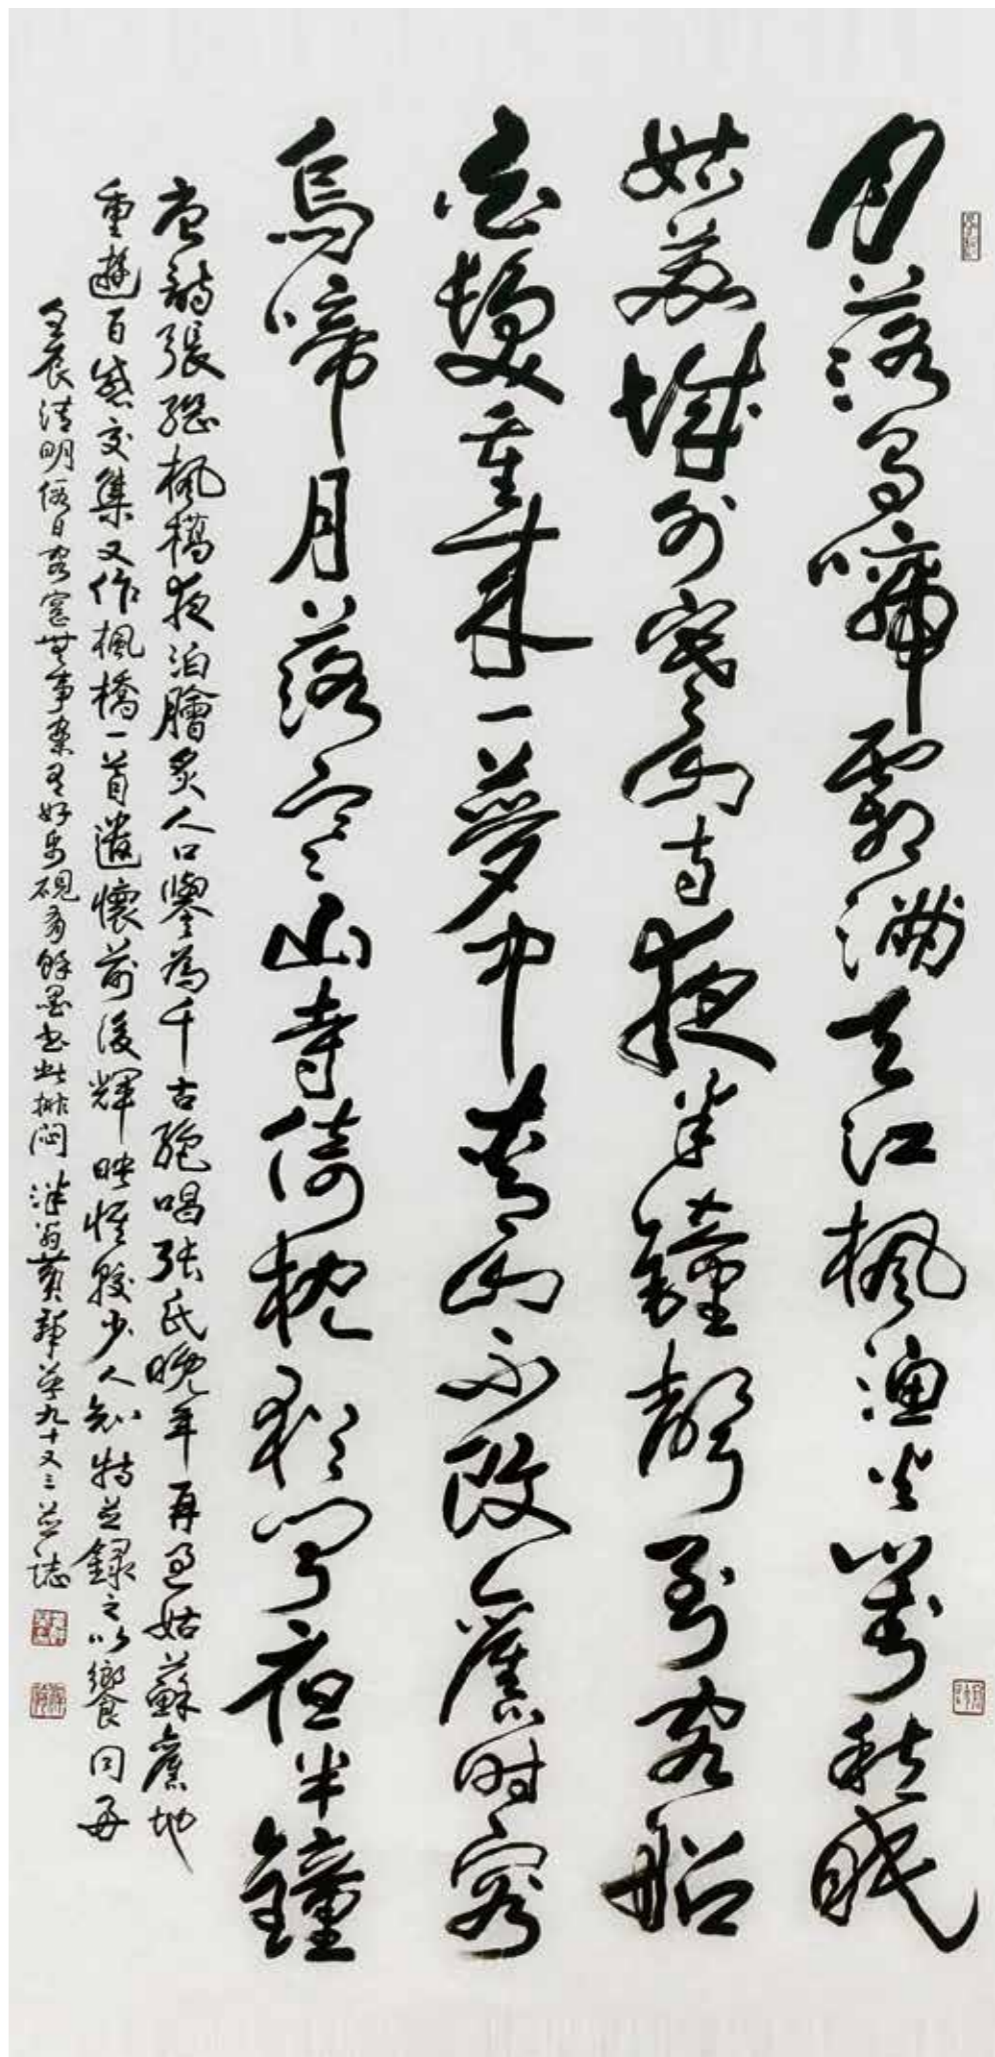 月落烏啼霜滿天江楓漁火對愁眠
姑蘇城外寒山寺夜半鐘聲到客船
白髮重來一夢中青山不改舊時容
烏啼月落寒山寺倚枕猶聞夜半鐘
唐詩張繼楓橋夜泊膾炙人口譽為千古絕唱張氏晚年再過姑蘇舊地
重遊百感交集又作楓橋一首遣懷前後輝映惟較少人知特並錄之以饗同好
壬辰清明假日客窗無事案有好紙硯有餘墨書此排悶 九十又三並誌